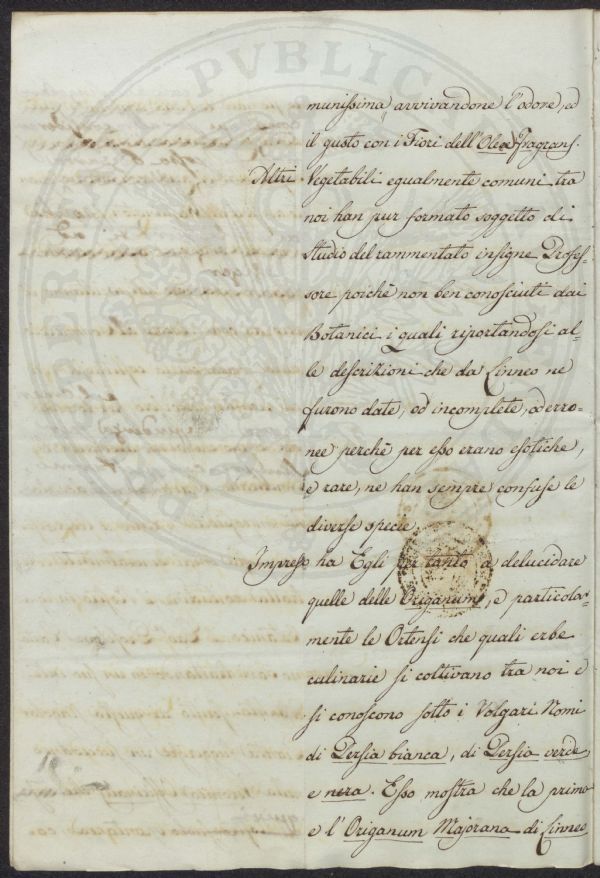 munissima avvivandone l'odore, ed
il gusto con i Fiori dell'Olea Fragrans.
Altri Vegetabili egualmente comuni tra
noi han pur formato soggetto di
Studio del rammentato insigne Profes=
sore poichè non ben conosciuti dai
Botanici i quali riportandosi al=
le descrizioni che da Linneo ne
furono date, od incomplete, od erro=
nee perchè per esso erano esotiche,
e rare, ne han sempre confuse le
diverse specie.
Impreso ha Egli per tanto a delucidare
quelle delle Origanum, e particolar=
mente le Ortensi che quali erbe
culinarie si coltivano tra noi e
si conoscono sotto i Volgari Nomi
di Persia bianca, di Persia verde
e nera. Esso mostra che la prima
e l'Origanum Majorana di Linneo